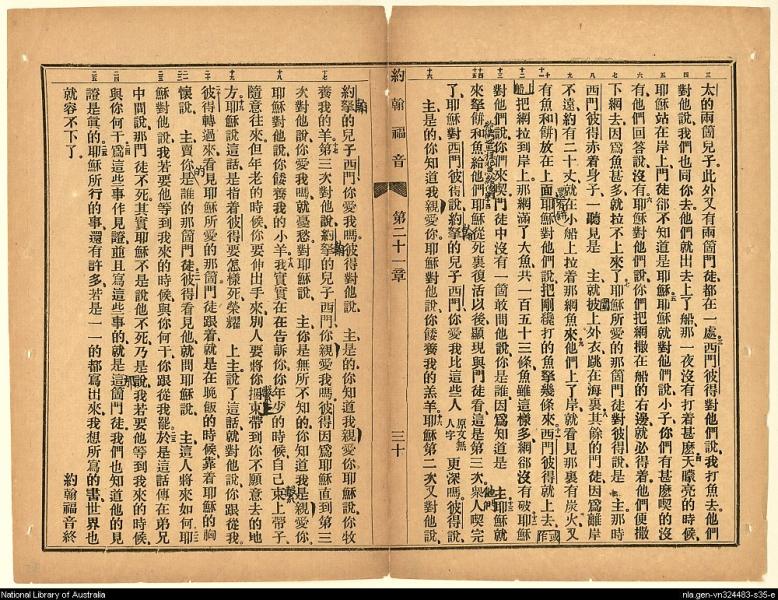 太的兩箇兒子此外又有兩箇門徒都在一處西門彼得對他們說我打魚去他們
對他說我們也同你去他們就出去上了船那一夜沒有打着甚麽天矇亮的時候
耶穌站在岸上門徒卻不知道是耶穌耶穌就對他們說小子你們有甚麽喫的沒
有他們回答說沒有耶穌對他們說你們把網撒在船的右邊就必得着他們便撒
下網去因爲魚甚多就拉不上來了耶穌所愛的那箇門徒對彼得說是 主那時
西門彼得赤着身子一聽見是 主就披上外衣跳在海裏其餘的門徒因爲離岸
不遠約有二十丈就在小船上拉着那網魚來他們上了岸就看見那裏有炭火又
有魚和餅放在上面耶穌對他們說把剛纔打的魚拏幾條來西門彼得就上去
把網拉到岸上那網滿了大魚共一百五十三條魚雖這樣多網卻沒有破耶穌
對他們說你們來喫門徒中沒有一箇敢問他說你是誰因爲知道是 主耶穌就
來拏餅和魚給他們耶穌從死裏復活以後顯現與門徒看這是第三次衆人喫完
了耶穌對西門彼得說約拏的兒子西門你愛我比這些人原文無人字更深嗎彼得說
主是的你知道我親愛你耶穌對他說你餧養我的羔羊耶穌第二次又對他說
約翰福音 第二十一章 三十
約拏的兒子西門你愛我嗎彼得對他說 主是的你知道我親愛你耶穌說你牧
養我的羊第三次對他說約拏的兒子西門你親愛我嗎彼得因爲耶穌直到第三
次對他說你愛我嗎就憂愁對耶穌說 主你是無所不知的你知道我是親愛你
耶穌對他說你餧養我的小羊我實實在在告訴你你年少的時候自己束上帶子
隨意往來但年老的時候你要伸出手來別人要將你捆束帶到你不願意去的地
方耶穌說這話是指着彼得要怎樣死榮耀 上主說了這話就對他說你跟從我
彼得轉過來看見耶穌所愛的那箇門徒跟着就是在晚飯的時候靠着耶穌的胸
懷說 主賣你是誰的那箇門徒彼得看見他就問耶穌說 主這人將來如何耶
穌對他說我若要他等到我來的時候與你何干你跟從我罷於是這話傳在弟兄
中間說那門徒不死其實耶穌不是說他不死乃是說我若要他等到我來的時候
與你何干爲這些事作見證並且寫這些事的就是這箇門徒我們也知道他的見
證是眞的耶穌所行的事還有許多若是一一的都寫出來我想所寫的書世界也
就容不下了
約翰福音終
National Library of Australia
nla.gen-vn324483-s35-e